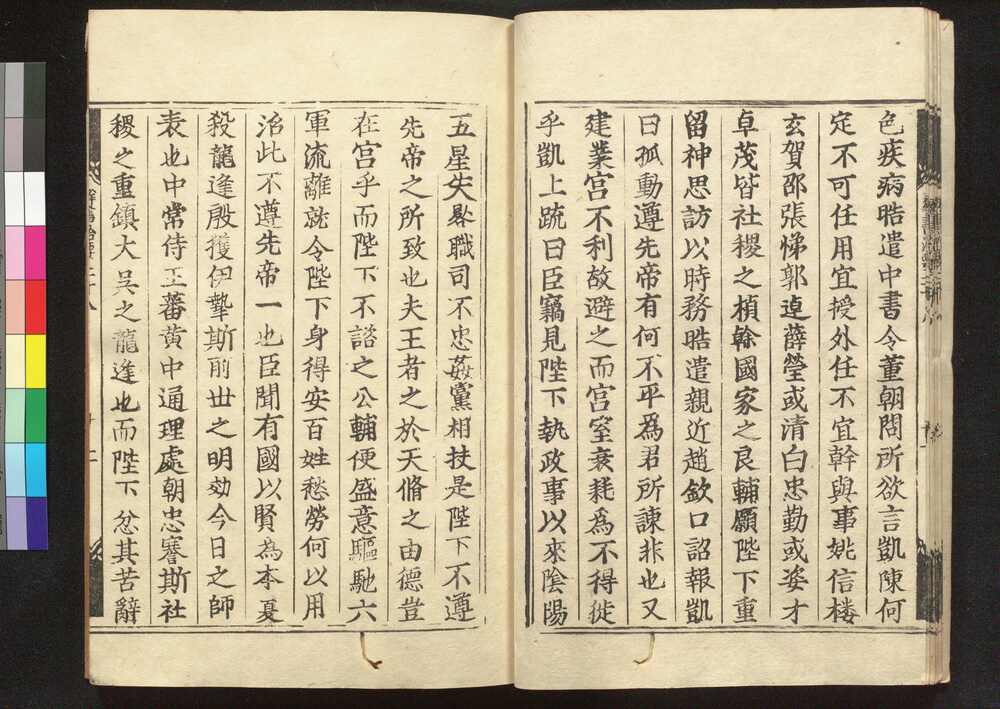 色疾病晧遣中書令董朝問所欲言凱陳何
定不可任用宜授外任不宜幹與事姚信楼
玄賀邵張悌郭逴薛瑩或清白忠勤或姿才
卓茂皆社稷之楨幹國家之良輔願陛下重
留神思訪以時務晧遣親近趙欽口詔報凱
曰孤動遵先帝有何不平為君所諫非也又
建業宮不利故避之而宮室衰耗為不得徙
乎凱上疏曰臣竊見陛下執政事以來陰陽
五星失晷職司不忠姦黨相扶是陛下不遵
先帝之所致也夫王者之於天脩之由德豈
在宮乎而陛下不諮之公輔便盛意驅馳六
軍流離就令陛下身得安百姓愁勞何以用
治此不遵先帝一也臣聞有國以賢為本夏
殺龍逢殷獲伊摯斯前世之明効今日之師
表也中常侍王蕃黃中通理處朝忠謇斯社
稷之重鎮大吳之龍逢也而陛下忿其苦辭